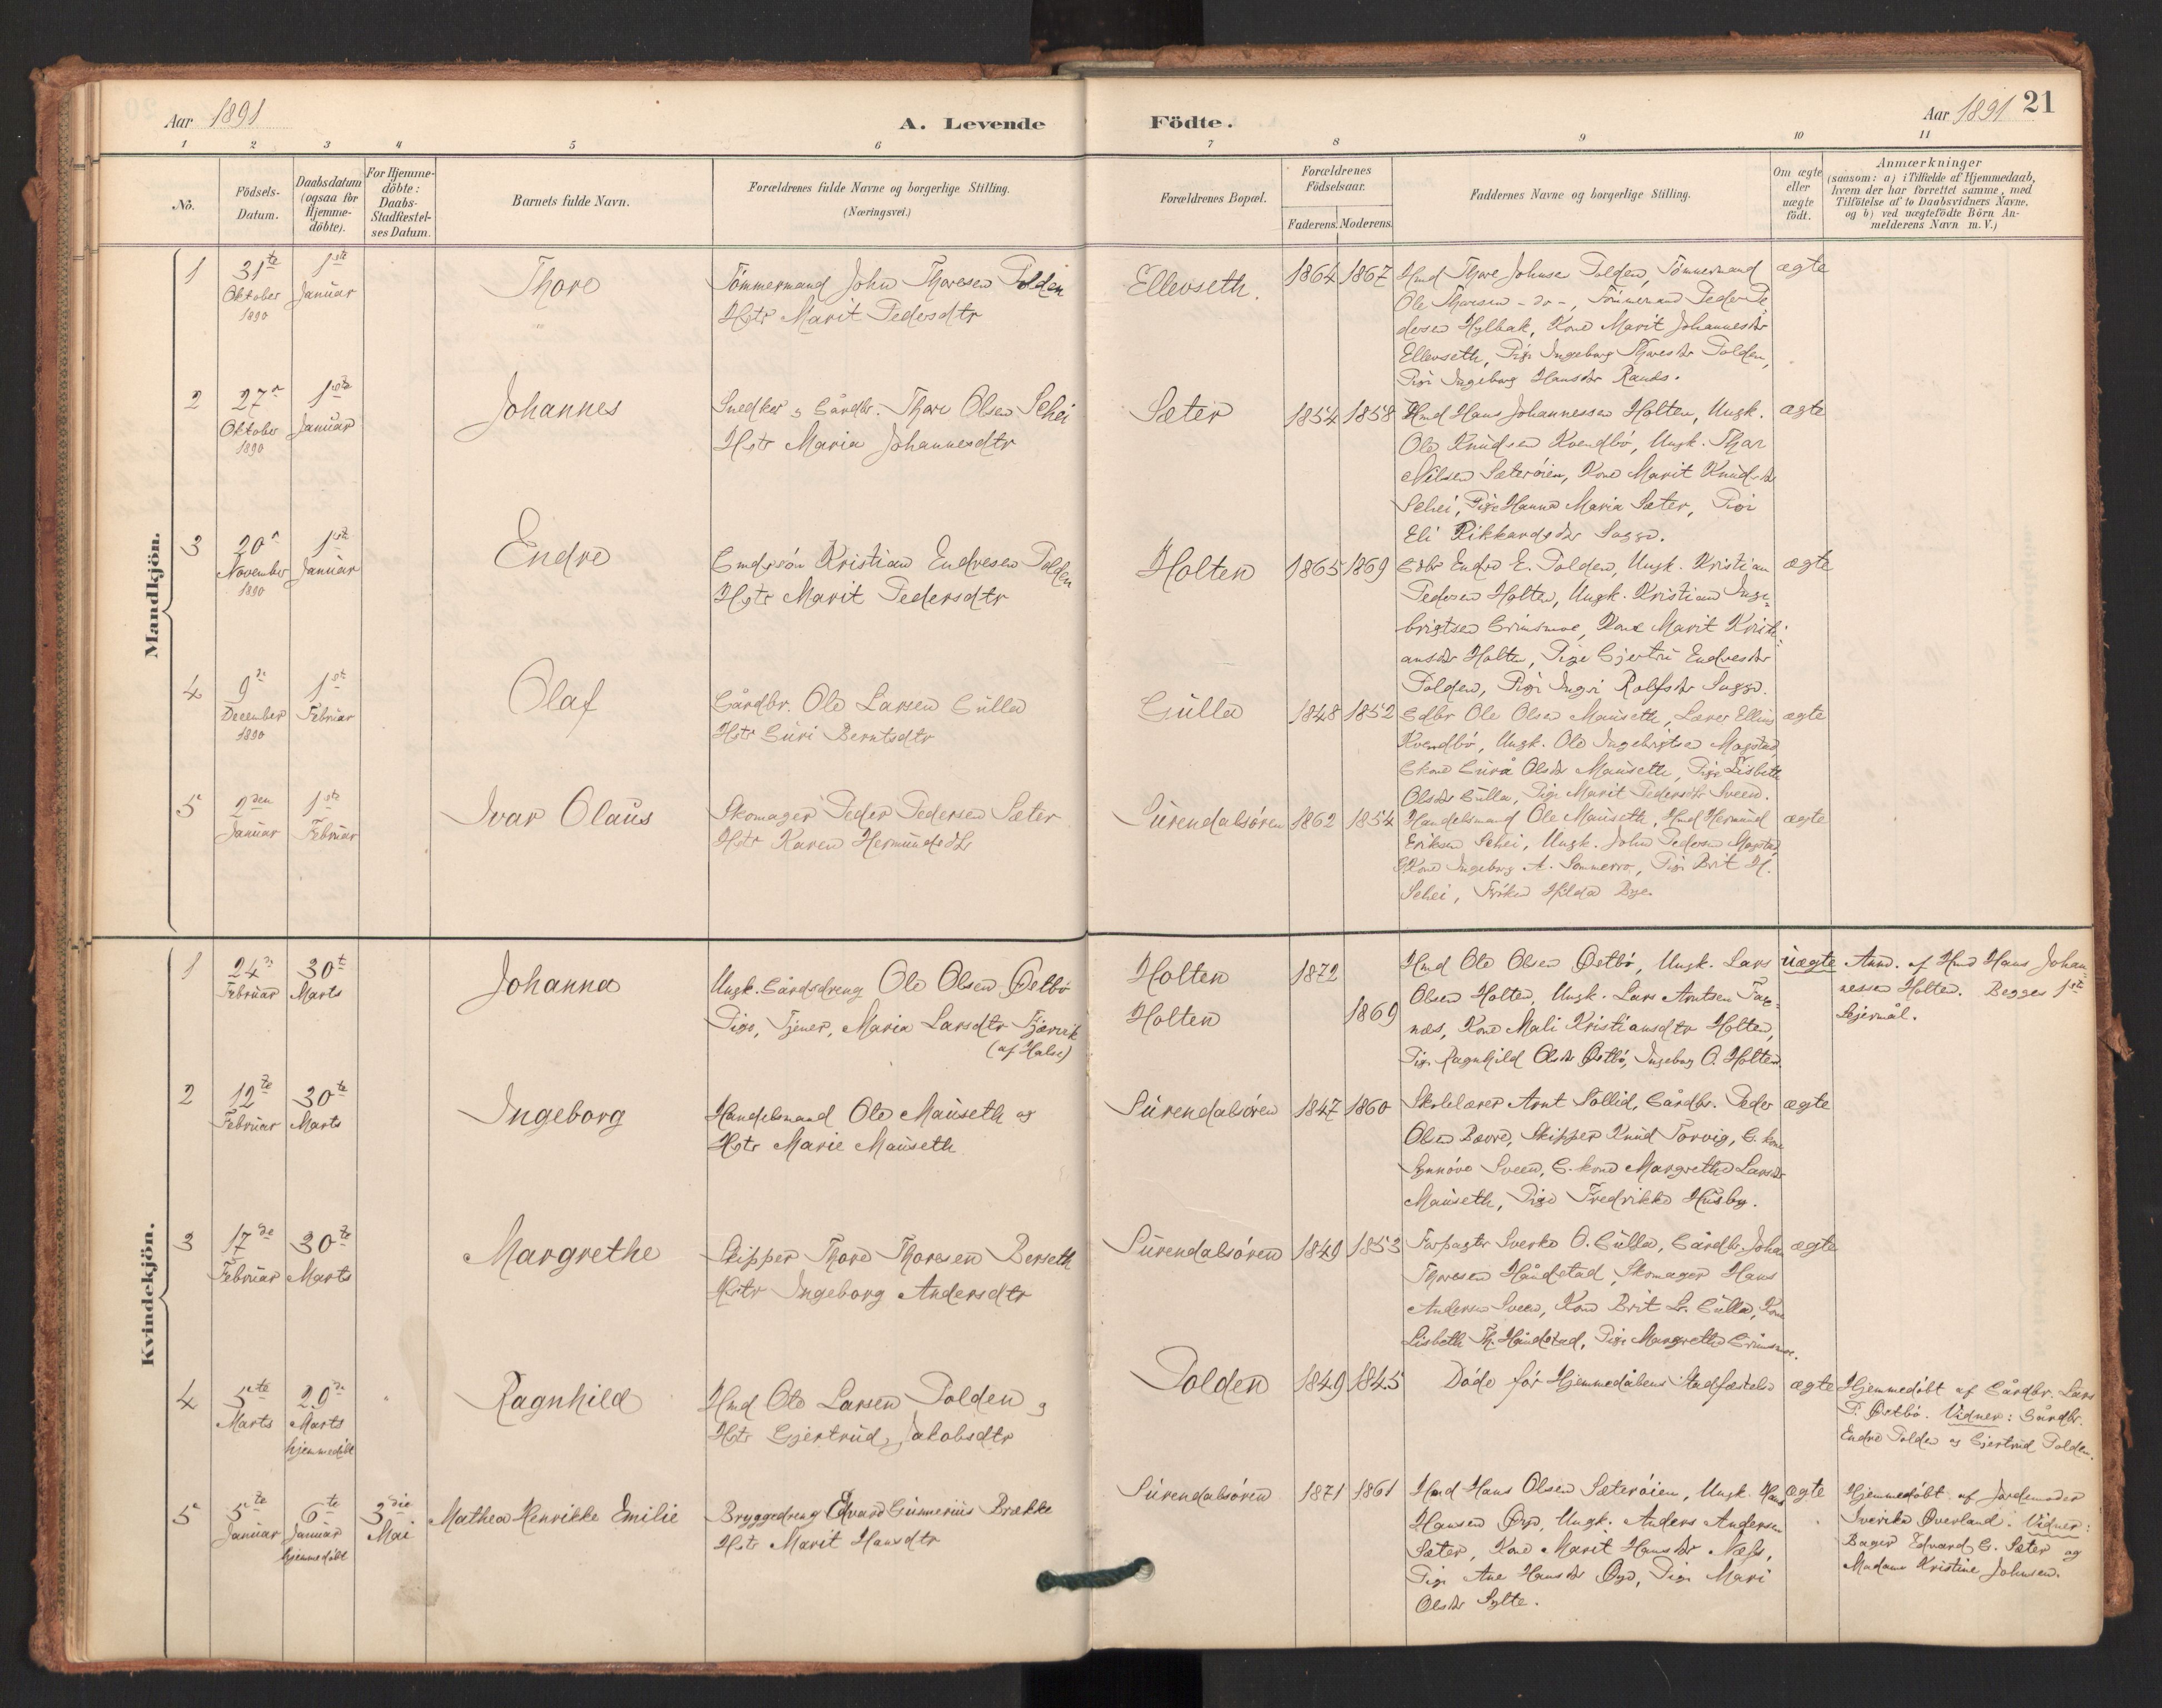 Aar 1891
A. Levende Födte.
Aar 1891 21
1 2 3 4 5 6 7 8 9 10 11
No.
Födsels-Datum.
Daabsdatum (ogsaa for Hjemme-döbte).
For Hjemme-döbte: Daabs-Stadfæstel-ses Datum.
Barnets fulde Navn.
Forældrenes fulde Navne og borgerlige Stilling.
(Næringsvei.)
Forældrenes Bopæl.
Forældrenes Födselsaar.
Faderens. Moderens.
Faddernes Navne og borgerlige Stilling.
Om ægte eller uægte födt.
Anmærkninger
(saasom: a) i Tilfælde af Hjemmedaab,
hvem der har forrettet samme, med
Tilföielse af to Daabsvidners Navne.
og b) ved uægtefödte Börn An-
melderens Navn m. V.)
Mandkjön.
1 31te Oktober 1890 1ste Januar Thore
Tömmermand John Thoresen Polden
Hstr Marit Pedersdtr
Ellevseth. 1864 1867
Hmd Thore Johnsen Polden, Tömmermand
Ole Thoresen - do -, Tömmermand Peder Pe
dersen Hylbak, Kone Marit Johannesdtr
Ellevseth, Pige Ingeborg Thoresdtr Polden,
Pige Ingeborg Hansdtr Rands.
ægte
2 27de Oktober 1890 1ste Januar Johannes
Snedker og Gårdbr. Thore Olsen Schei
Hstr Maria Johannesdtr
Sæter 1854 1858
Hmd Hans Johannessen Holten, Ungk.
Ole Knudsen Kvendbö, Ungk. Thor
Nilsen Sæteröien, Kone Marit Knudsdtr
Schei, Pige Hanna Maria Sæter, Pige
Eli Rikkardsdtr Sagge.
ægte
3 20de November 1890 1ste Januar Endre
Gmdssön Kristian Endresen Polden
Hstr Marit Pedersdtr
Holten 1865 1869
Gdbr Endre E. Polden, Ungk. Kristian
Pedersen Holten, Ungk. Kristian Inge
brigtsen Grimsmoe, Kone Marit Kristi
ansdtr Holten, Pige Gjertru Endresdtr
Polden, Pige Ingri Rolfsdtr Sagge.
ægte
4 9de December 1890 1ste Februar Olaf
Gårdbr. Ole Larsen Gulla
Hstr Guri Berntsdtr
Gulla 1848 1852
Gdbr Ole Olsen Mauseth, Lærer Ellius
Kvendbö, Ungk. Ole Ingebrigtsen Mogstad
Gkone Gurå Olsdtr Mauseth, Pige Lisbeth
Olsdtr Gulla, Pige Marit Pedersdtr Sveen.
ægte
5 2den Januar 1ste Februar Ivar Olaus
Skomager Peder Pedersen Sæter
Hstr Karen Hermundsdtr
Surendalsören 1862 1854
Handelsmand Ole Mauseth, Hmd Hermund
Eriksen Schei, Ungk. John Pedersen Mogstad,
Gkone Ingeborg A. Sommerro, Pige Brit H.
Schei, Fröken Hilda Bye.
ægte
Kvindekjön.
1 24de Februar 30te Marts Johanna
Ungk. Gårdsdreng Ole Olsen Östbö
Pige, Tjener, Maria Larsdtr Fjærvik
(af Halse)
Holten 1872
Holten 1869
Hmd Ole Olsen Östbö, Ungk. Lars
Olsen Holten, Ungk. Lars Arntsen Fag-
næs, Kone Mali Kristiansdtr Holten,
Pige Ragnhild Olsdtr Östbö, Ingeborg O. Holten.
uægte
Anm. af Hmd Hans Johan-
nessen Holten. Begges 1ste
Lejermål.
2 12te Februar 30te Marts Ingeborg
Handelsmand Ole Mauseth og
Hstr Marie Mauseth
Surendalsören 1847 1860
Skolelærer Arnt Sollid, Gårdbr. Peder
Olsen Bævre, Skipper Knud Torvig, G. kone
Synnöve Sveen, G. kone Margrethe Larsdtr
Mauseth, Pige Fredrikke Husby.
ægte
3 17de Februar 30te Marts Margrethe
Skipper Thore Thoresen Berseth
Hstr Ingeborg Andersdtr
Surendalsören 1849 1853
Forpagter Sverke O. Gulla, Gårdbr. Johan
Thoresen Håndstad, Skomager Hans
Andersen Sveen, Kone Brit L. Gulla, Kone
Lisbeth Th. Håndstad, Pige Margrethe Grimsmoe.
ægte
4 5te Marts 29de Marts hjemmedöbt Ragnhild
Hmd Ole Larsen Polden og
Hstr Gjertrud Jakobsdtr
Polden 1849 1845
Döde för Hjemmedåbens Stadfæstelse
ægte
Hjemmedöbt af Gårdbr. Lars
P. Östbö. Vidner: Gårdbr.
Endre Polden og Gjertrud Polden.
5 5te Januar 6te Januar hjemmedöbt 3die Mai Mathea Henrikke Emilie
Bryggedreng Edvard Gunnerius Brække
Hstr Marit Hansdtr
Surendalsören 1871 1861
Hmd Hans Olsen Sæteröien, Ungk. Hans
Hansen Öye, Ungk. Anders Andersen
Sæter, Kone Marit Hansdtr Næss,
Pige Ane Hansdtr Öye, Pige Mari
Olsdtr Sylte.
ægte
Hjemmedöbt af Jordemoder
Sverika Överland. Vidner:
Bager Edvard G. Sæter og
Madame Kristine Johnsen.